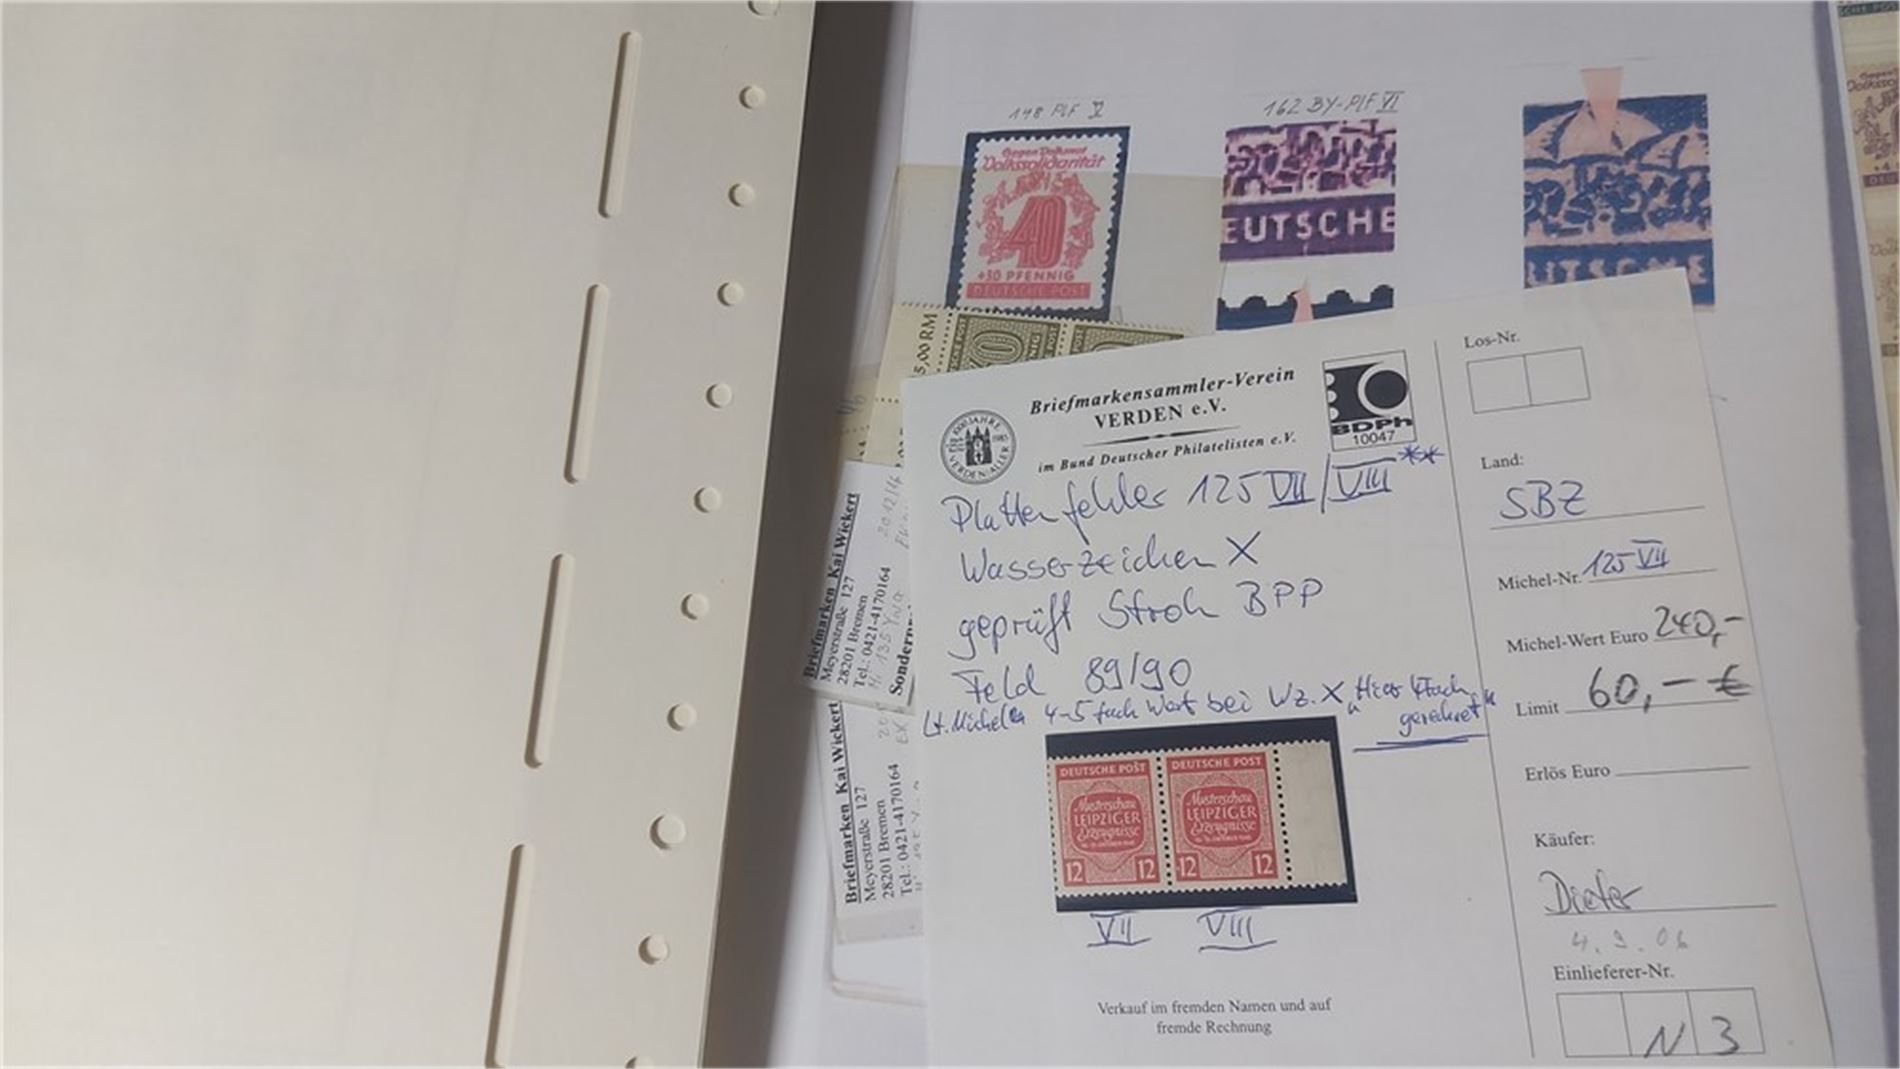 148 PLF V
162 BY-PLF VI
Gegen Volksnot
Volkssolidarität
40
+30 PFENNIG
DEUTSCHE POST
EUTSCHE
UTSCHE
5,00 RM
Briefmarkensammler-Verein
VERDEN e.V.
im Bund Deutscher Philatelisten e.V.
BDPh
10047
Plattenfehler 125 VII/VIII **
Wasserzeichen X
geprüft Ströh BPP
Feld 89/90
Lt. Michel 4-5 fach Wert bei Wz. X "Hier 4fach
gerechnet"
DEUTSCHE POST
Musterschau
LEIPZIGER
Erzeugnisse
12 12
DEUTSCHE POST
Musterschau
LEIPZIGER
Erzeugnisse
12 12
VII VIII
Verkauf im fremden Namen und auf
fremde Rechnung
Los-Nr.
Land:
SBZ
Michel-Nr. 125 VII
Michel-Wert Euro 240,-
Limit 60,- €
Erlös Euro
Käufer:
Dieter
Einlieferer-Nr.
N 3
Briefmarken Kai Wickert
Meyerstraße 127
28201 Bremen
Tel.: 0421-4170164
Briefmarken Kai Wickert
Meyerstraße 127
28201 Bremen
Tel.: 0421-4170164